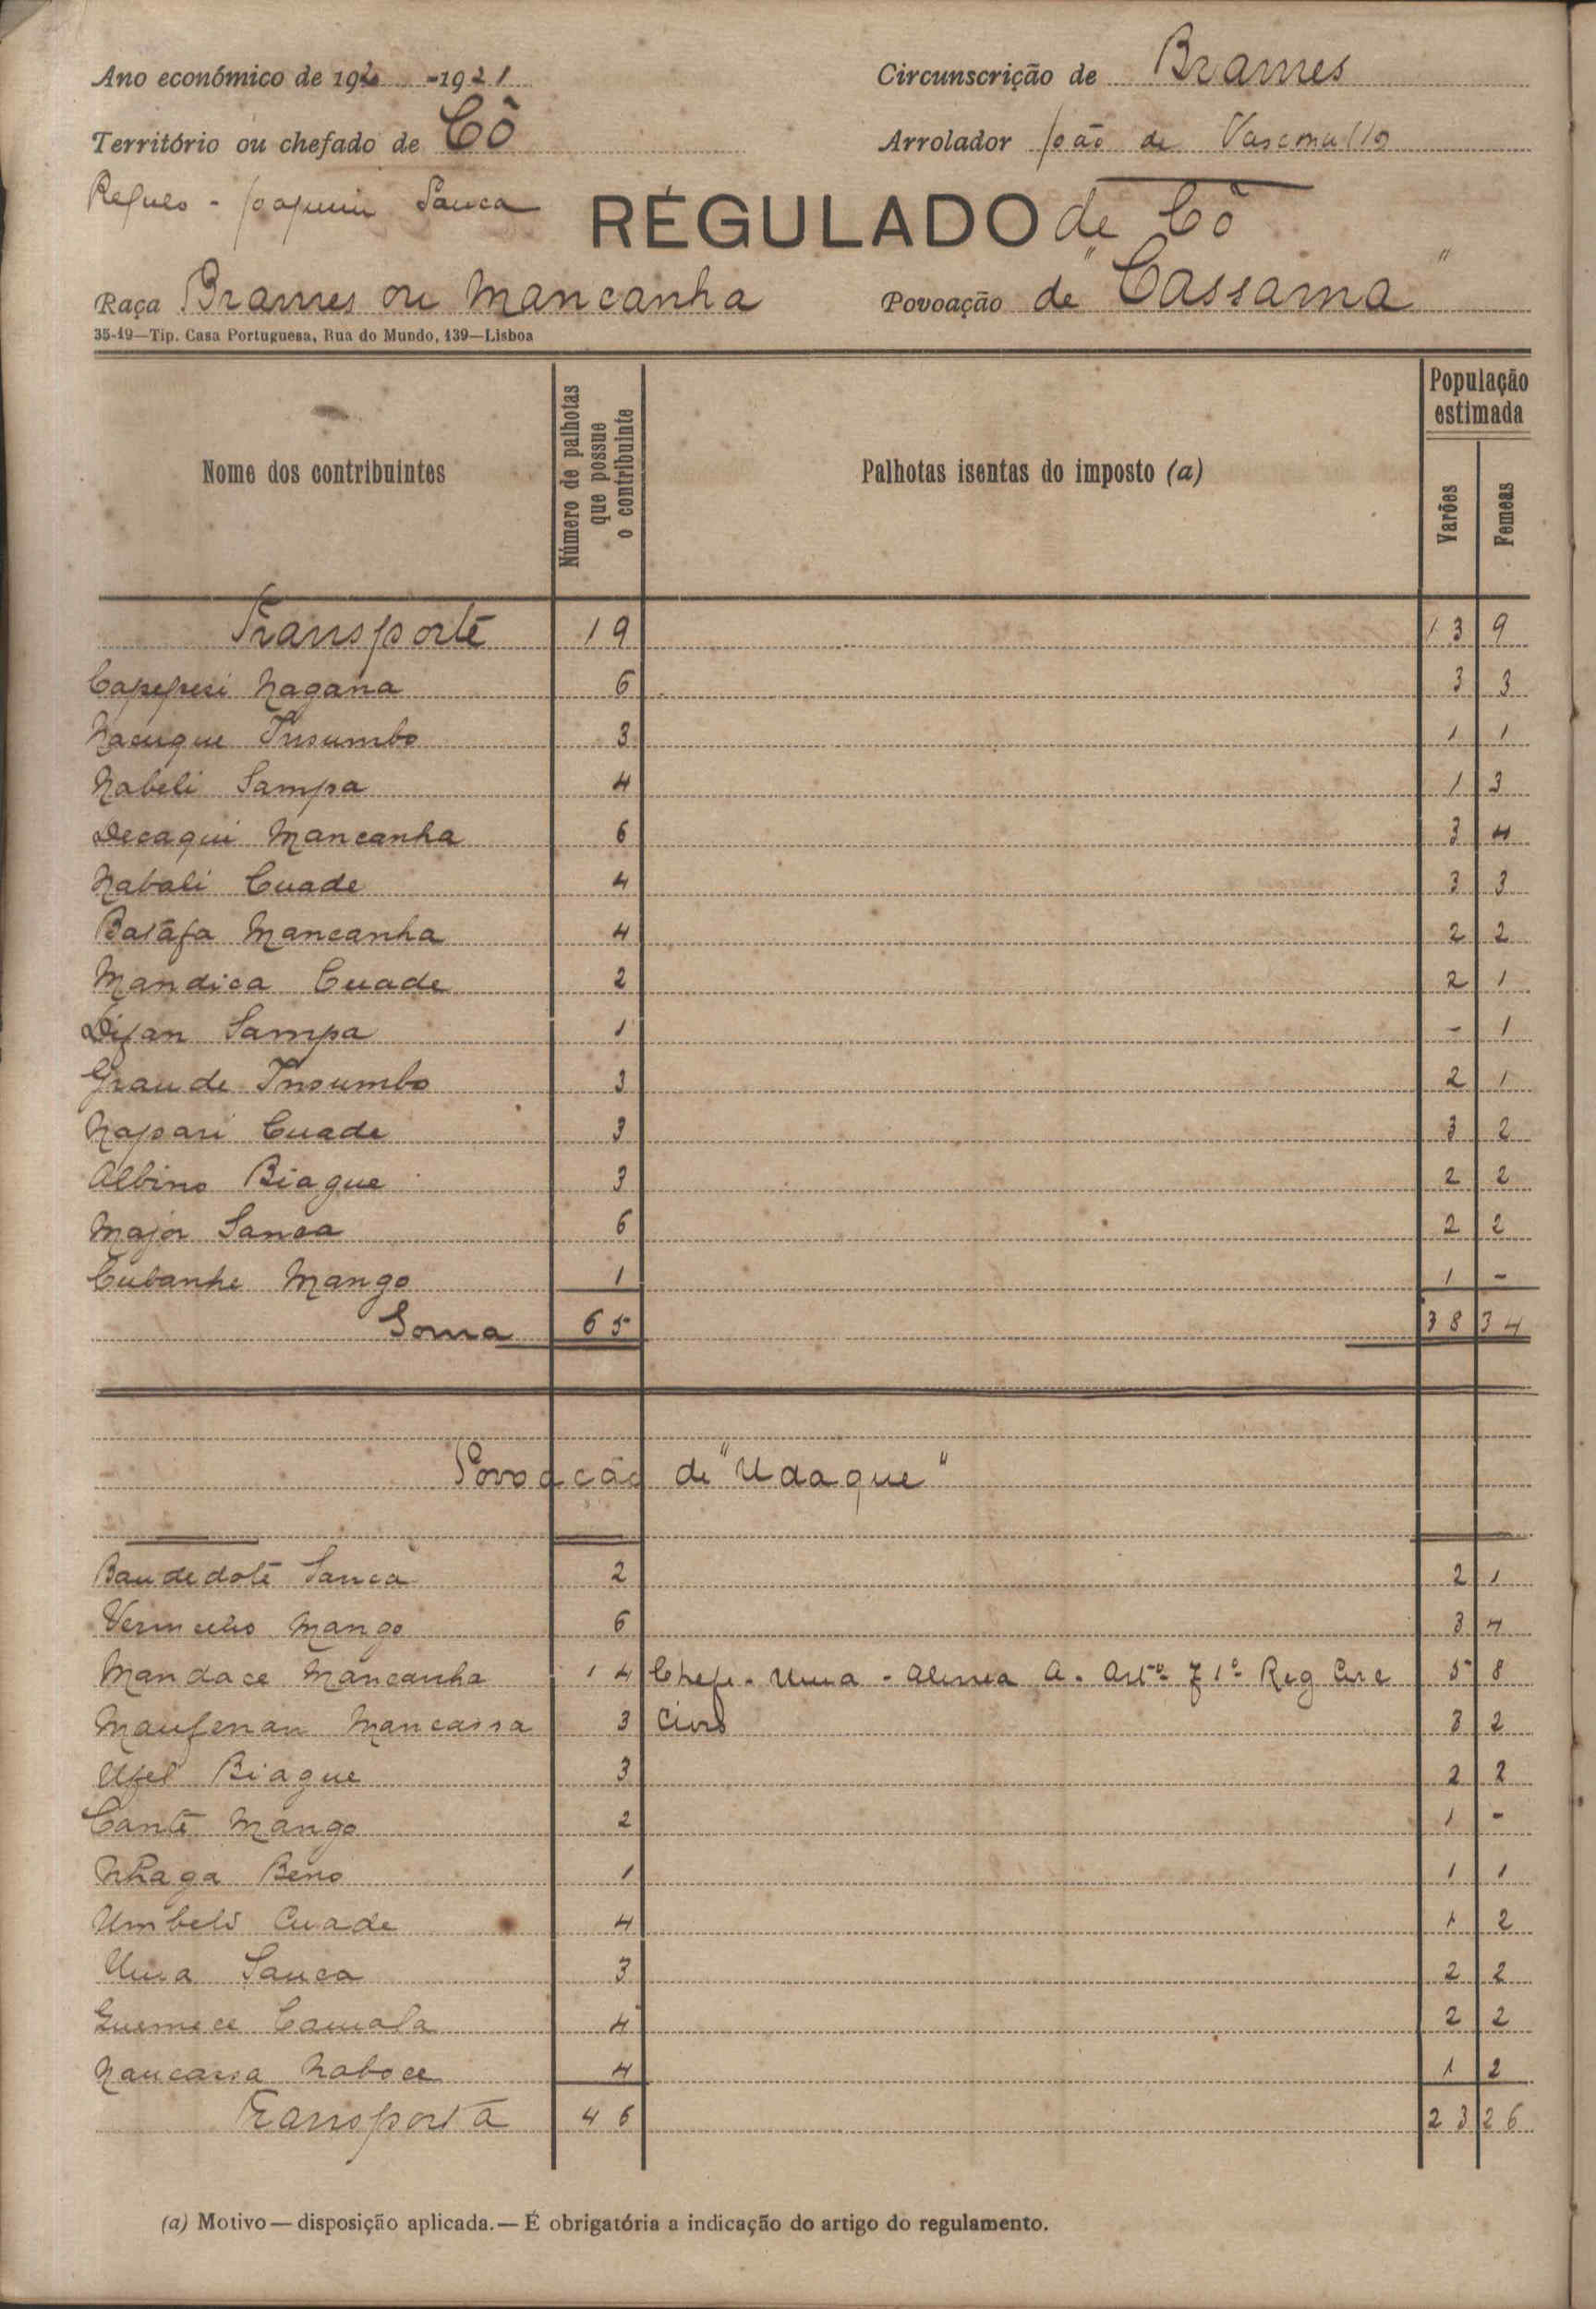 Ano económico de 1920-1921 Circunscrição de Brames
Território ou chefado de Cô Arrolador João de Vasconcellos
Regulo - Joaquim Sanca
RÉGULADO de Cô
Raça Brames ou Mancanha Povoação de "Cassama"
35-19—Tip. Casa Portuguesa, Rua do Mundo, 139—Lisboa
Nome dos contribuintes Número de palhotas que possue o contribuinte Palhotas isentas do imposto (a) População estimada Varões Femeas
Transporte 19 13 9
Capepesi Nagana 6 3 3
Nacuque Insumbo 3 1 1
Nabeli Sampa 4 1 3
Decaqui Mancanha 6 3 4
Nabali Cuade 4 3 3
Batáfa Mancanha 4 2 2
Mandica Cuade 2 2 1
Difan Sampa 1 - 1
Grande Insumbo 3 2 1
Napari Cuade 3 3 2
Albino Biague 3 2 2
Major Sanca 6 2 2
Cubanhe Mango 1 1 -
Soma 65 38 34
Povoação de "Udaque"
Baudedoté Sanca 2 2 1
Vermelho Mango 6 3 4
Mandace Mancanha 14 Chefe - Uma - Alinea A. Artº 71º Reg Circ 5 8
Maufenan Mancassa 3 Civis 3 2
Ufel Biague 3 2 2
Canté Mango 2 1 -
Nhaga Beno 1 1 1
Umbelo Cuade 4 1 2
Uma Sanca 3 2 2
Guemece Camala 4 2 2
Naucassa Naboce 4 1 2
Transporta 46 23 26
(a) Motivo — disposição aplicada. — É obrigatória a indicação do artigo do regulamento.